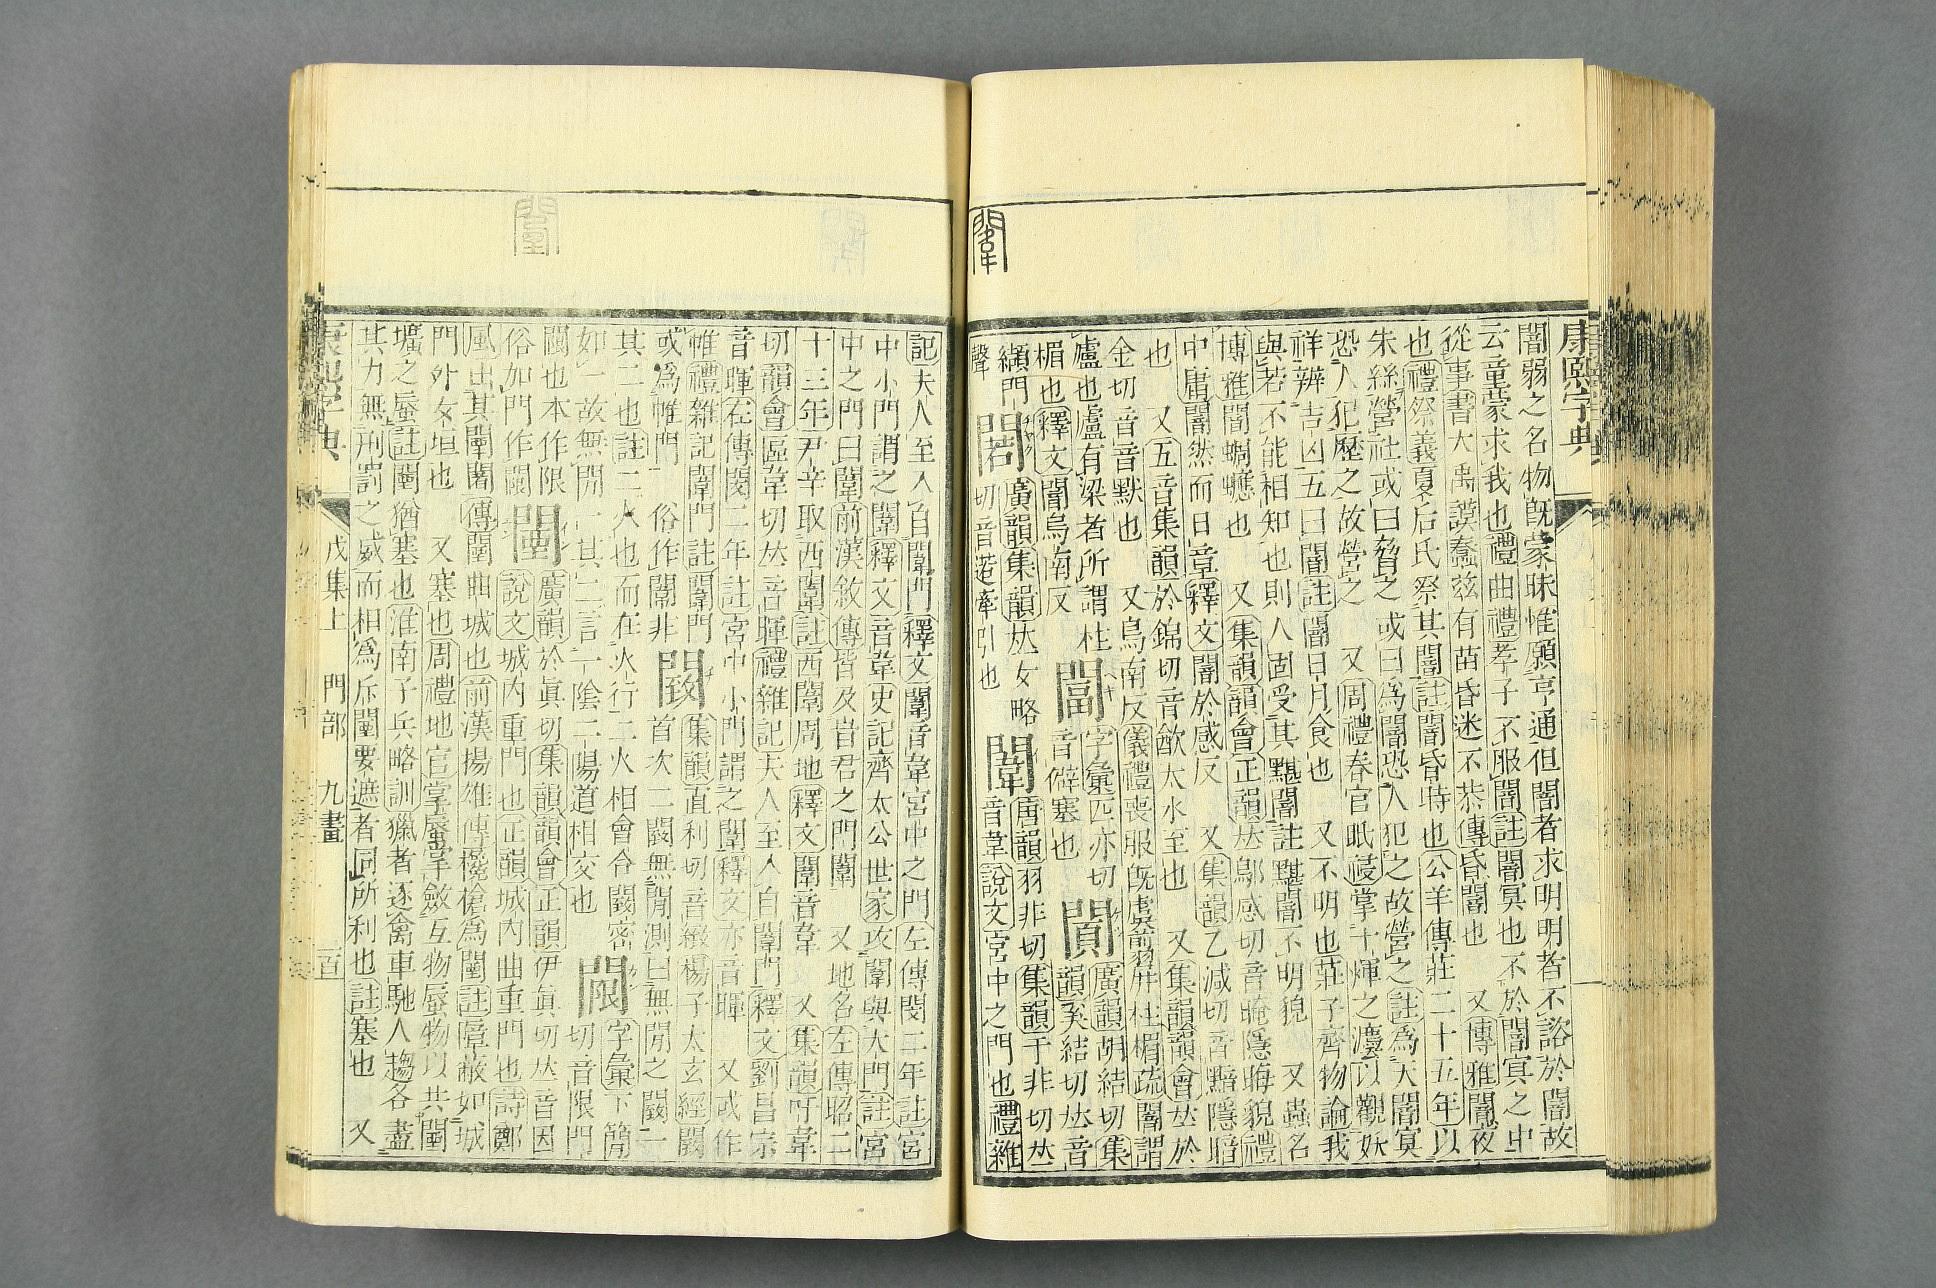 康熙字典
闇弱之名物旣蒙昧惟願亨通但闇者求明明者不諮於闇故
云童蒙求我也禮曲禮孝子不服闇註闇冥也不於闇冥之中
從事書大禹謨蠢茲有苗昏迷不恭傳昏闇也 又博雅闇夜
也禮祭義夏后氏祭其闇註闇昏時也公羊傳莊二十五年以
朱絲營社或曰脅之或曰爲闇恐人犯之故營之註爲大闇冥
恐人犯歷之故營之 又周禮春官眂祲掌十煇之灋以觀妖
祥辨吉凶五曰闇註闇日月食也 又不明也莊子齊物論我
與若不能相知也則人固受其黮闇註黮闇不明貌 又蟲名
博雅闇蜩蟪也 又集韻韻會正韻𠀤鄔感切音晻隱晦貌禮
中庸闇然而日章釋文闇於感反 又集韻乙減切音黯隱暗
也 又五音集韻於錦切音飮大水至也 又集韻韻會𠀤於
金切音音默也 又烏南反儀禮喪服旣虞翦屛柱楣疏闇謂
廬也廬有梁者所謂柱楣也釋文闇烏南反
闢 字彙匹亦切音僻塞也
䦖 廣韻胡結切集韻奚結切𠀤音纈門聲
䦘 廣韻集韻𠀤女略切音逽牽引也
闈 唐韻羽非切集韻于非切𠀤音韋說文宮中之門也禮雜
闈
記夫人至入自闈門釋文闈音韋宮中之門左傳閔二年註宮
中小門謂之闈釋文音韋史記齊太公世家攻闈與大門註宮
中之門曰闈前漢敘傳皆及時君之門闈 又地名左傳昭二
十三年尹辛取西闈註西闈周地釋文闈音韋 又集韻吁韋
切韻會區韋切𠀤音暉禮雜記夫人至入自闈門釋文劉昌宗
音暉左傳閔二年註宮中小門謂之闈釋文亦音暉 又或作
帷禮雜記闈門註闈門或爲帷門 俗作闈非
䦯 集韻直利切音緻楊子太玄經闕首次二䦯無閒測曰無閒之䦯一
其二也註二火也而在火行二火相會合䦯密
如一故無閒一其二言一陰二陽道相交也
䦥 字彙下簡切音限門閾也本作限俗加門作䦥
闉 廣韻於眞切集韻韻會正韻伊眞切𠀤音因
說文城內重門也正韻城內曲重門也詩鄭
風出其闉闍傳闉曲城也前漢揚雄傳欃槍爲闉註障蔽如城
門外女垣也 又塞也周禮地官掌蜃掌斂互物蜃物以共闉
壙之蜃註闉猶塞也淮南子兵略訓獵者逐禽車馳人趨各盡
其力無刑罰之威而相爲斥闉要遮者同所利也註塞也 又
康熙字典 戌集上 門部 九畫 一百
闉